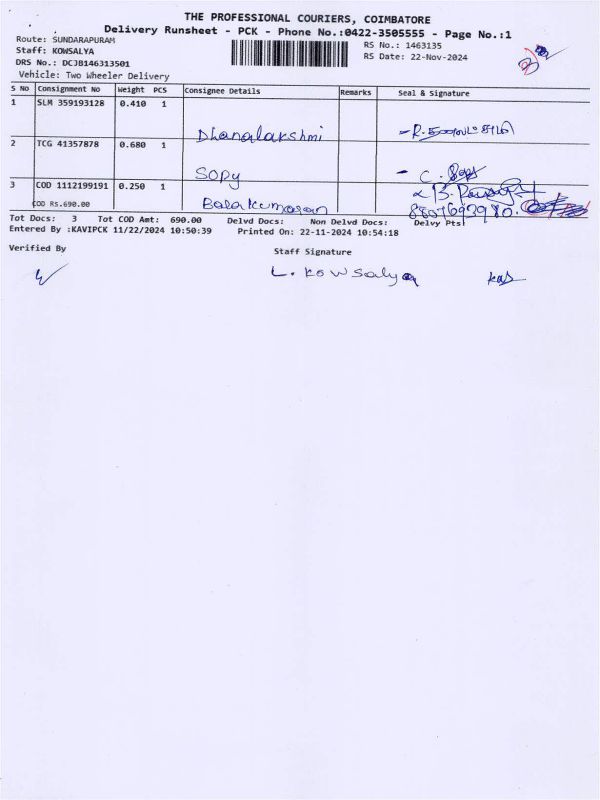 THE PROFESSIONAL COURIERS, COIMBATORE
Delivery Runsheet - PCK - Phone No.:0422-3505555 - Page No.:1
Route: SUNDARAPURAM
RS No.: 1463135
Staff: KOWSALYA
RS Date: 22-Nov-2024
DRS No.: DCJB146313501
Vehicle: Two Wheeler Delivery
S No Consignment No Weight PCS Consignee Details Remarks Seal & Signature
1 SLM 359193128 0.410 1
Dhanalakshmi
2 TCG 41357878 0.680 1
Sopy - C.
3 COD 1112199191 0.250 1
COD Rs.690.00 Balakumaran 8807693980.
Tot Docs: 3 Tot COD Amt: 690.00 Delvd Docs: Non Delvd Docs: Delvy Pts:
Entered By :KAVIPCK 11/22/2024 10:50:39 Printed On: 22-11-2024 10:54:18
Verified By Staff Signature
L. Kowsalya